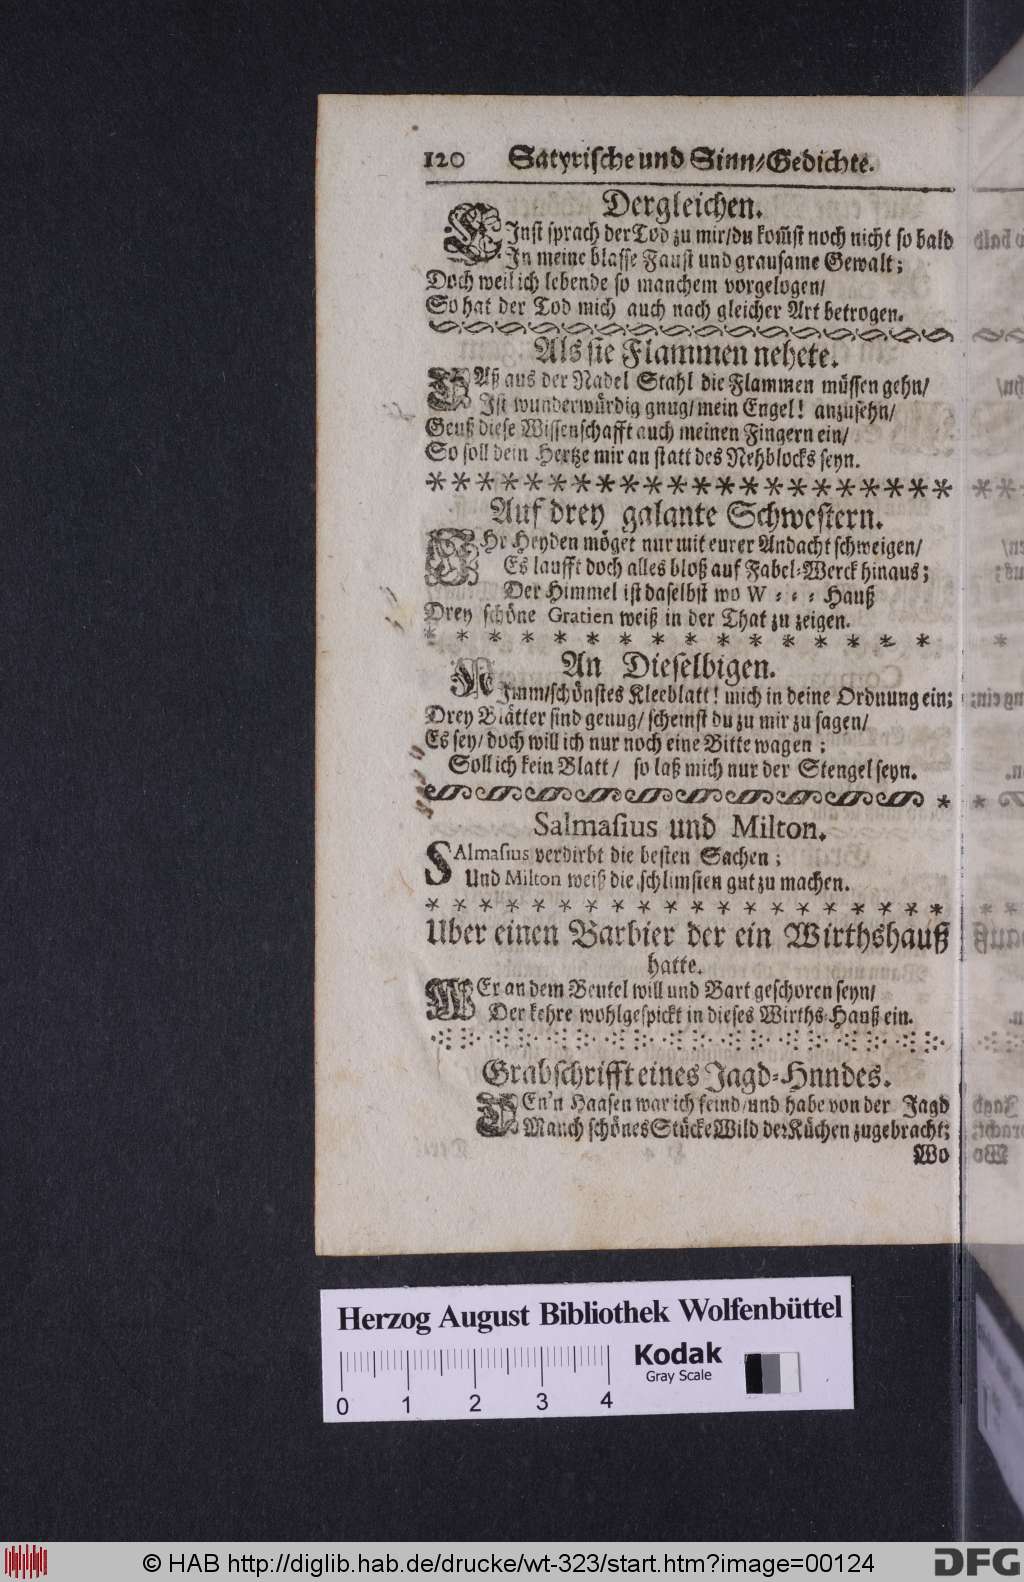 120 Satyrische und Sinn-Gedichte.
Dergleichen.
EInst sprach der Tod zu mir/du kom̃st noch nicht so bald
In meine blasse Faust und grausame Gewalt;
Doch weil ich lebende so manchem vorgelogen/
So hat der Tod mich auch nach gleicher Art betrogen.
Als sie Flammen nehete.
DAß aus der Nadel Stahl die Flammen müssen gehn/
Ist wunderwürdig gnug/mein Engel! anzusehn/
Geuß diese Wissenschafft auch meinen Fingern ein/
So soll dein Hertze mir an statt des Nehblocks seyn.
Auf drey galante Schwestern.
IHr Heyden möget nur mit eurer Andacht schweigen/
Es laufft doch alles bloß auf Fabel-Werck hinaus;
Der Himmel ist daselbst wo W - - - Hauß
Drey schöne Gratien weiß in der That zu zeigen.
An Dieselbigen.
NImm/schönstes Kleeblatt! mich in deine Ordnung ein;
Drey Blätter sind genug/ scheinst du zu mir zu sagen/
Es sey/ doch will ich nur noch eine Bitte wagen;
Soll ich kein Blatt/ so laß mich nur der Stengel seyn.
Salmasius und Milton.
SAlmasius verdirbt die besten Sachen;
Und Milton weiß die schlimsten gut zu machen.
Uber einen Barbier der ein Wirthshauß
hatte.
WEr an dem Beutel will und Bart geschoren seyn/
Der kehre wohlgespickt in dieses Wirths-Hauß ein.
Grabschrifft eines Jagd-Hnndes.
DEn'n Haasen war ich feind/und habe von der Jagd
Manch schönes Stücke Wild der Küchen zugebracht;
Wo
Herzog August Bibliothek Wolfenbüttel
Kodak
Gray Scale
0 1 2 3 4
© HAB http://diglib.hab.de/drucke/wt-323/start.htm?image=00124
DFG